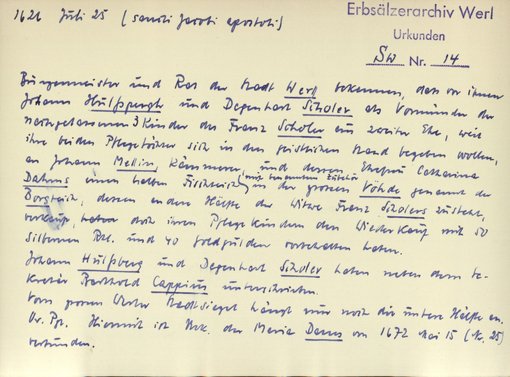 1621 Juli 25 (sancti Jacobi apostoli)
Erbsälzerarchiv Werl
Urkunden
Sw Nr. 14
Bürgermeister und Rat der Stadt Werl bekennen, dass vor ihnen
Johann Hülsberg und Degenhart Schöler als Vormünder der
nachgelassenen 3 Kinder des Franz Schöler aus zweiter Ehe, weil
ihre beiden Pflegetöchter sich in den geistlichen Stand begeben wollen,
an Johann Mellin, Kämmerer, und dessen Ehefrau Catharina
Dahms einen halben Fischteich (mit benanntem Zubehör) in der grossen Vöhde genannt der
Borgteich, dessen andere Hälfte der Witwe Franz Schölers zusteht,
verkauft, haben doch ihren Pflegekindern den Wiederkauf mit 50
silbernen Rtl. und 40 Goldgulden vorbehalten haben.
Johann Hülsberg und Degenhart Schöler haben neben dem Se-
kretär Barthold Cappius unterschrieben.
Vom grossen Werler Stadtsiegel hängt nur noch die untere Hälfte an.
Or. Pgt. Hiermit ist Urk. der Maria Dams von 1672 Mai 15 (Nr. 25)
verbunden.